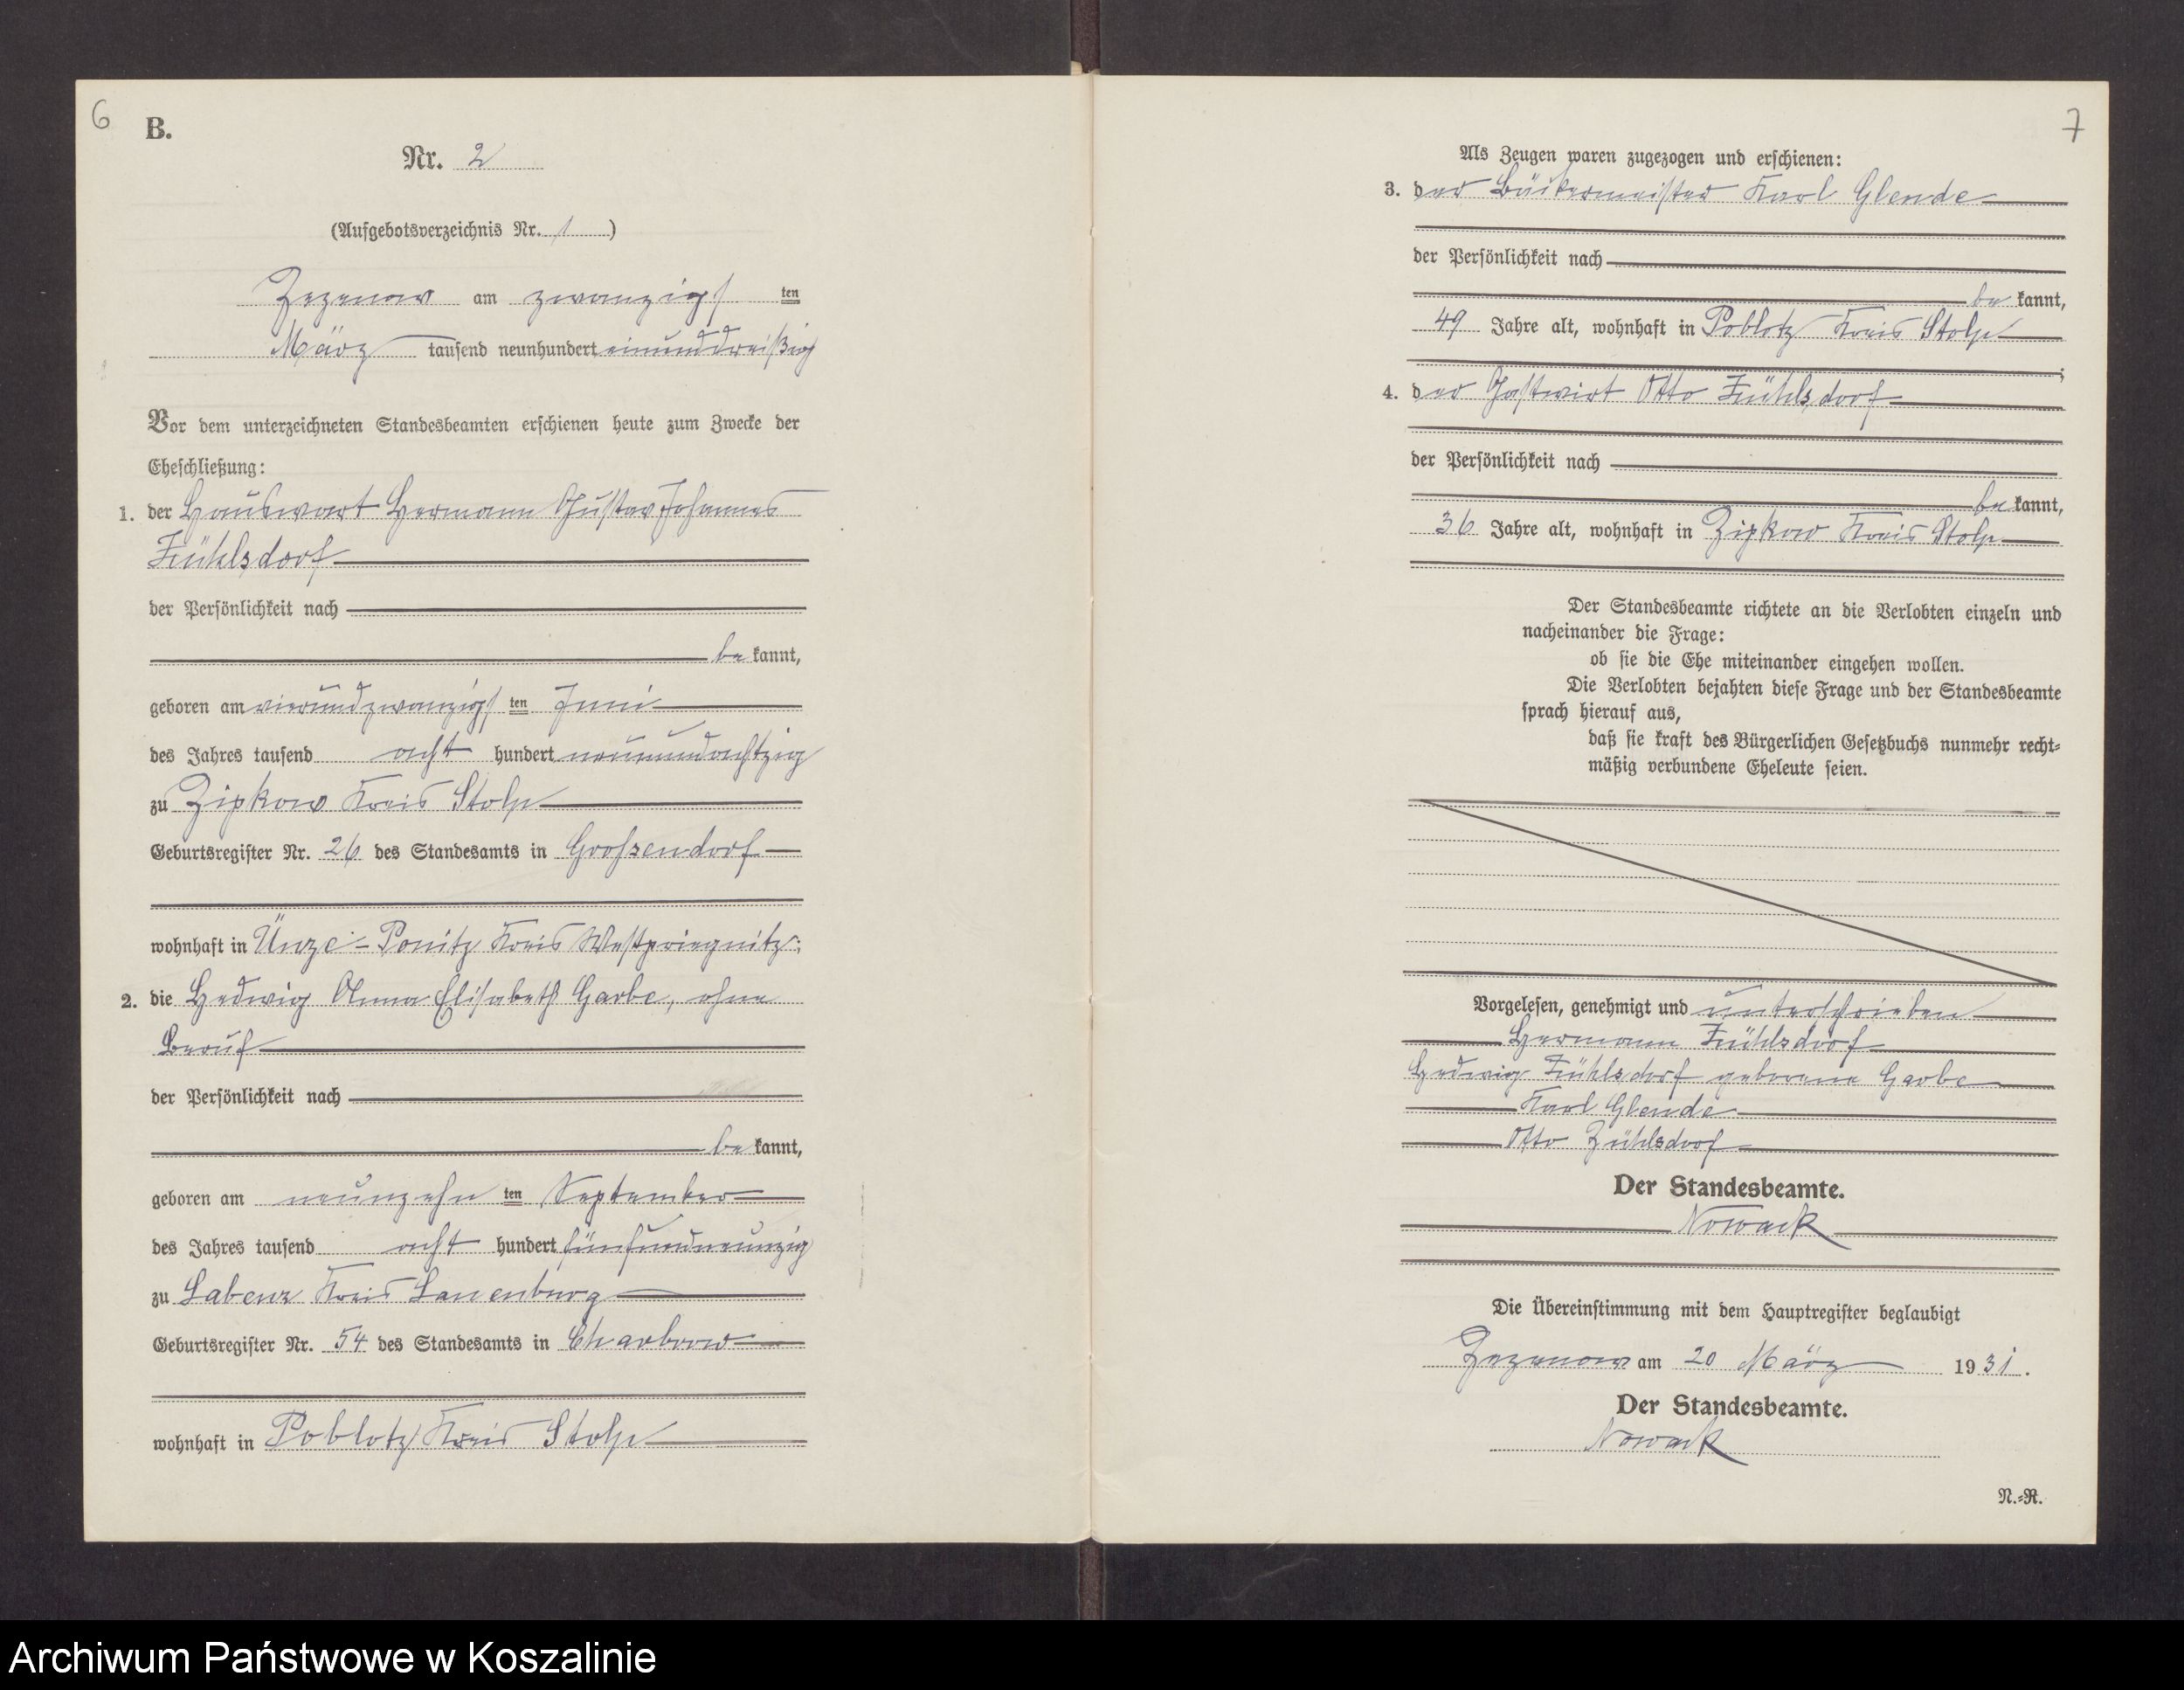 6
B.
Nr. 2
(Aufgebotsverzeichnis Nr. 1)
Zezenow am zwanzigsten
März tausend neunhundert einunddreißig
Vor dem unterzeichneten Standesbeamten erschienen heute zum Zwecke der
Eheschließung:
1. der Hauswart Hermann Gustav Johannes
Zühlsdorf
der Persönlichkeit nach
bekannt,
geboren am vierundzwanzigsten Juni
des Jahres tausend acht hundert neunundachtzig
zu Zipkow Kreis Stolp
Geburtsregister Nr. 26 des Standesamts in Grossendorf
wohnhaft in Kreis Westpriegnitz;
2. die Hedwig Anna Elisabeth Garbe, ohne
Beruf
der Persönlichkeit nach
bekannt,
geboren am neunzehnten September
des Jahres tausend acht hundert fünfundneunzig
zu Labenz Kreis Lauenburg
Geburtsregister Nr. 54 des Standesamts in Charbrow
wohnhaft in Poblotz Kreis Stolp
7
Als Zeugen waren zugezogen und erschienen:
3. der Bäckermeister Karl Glende
der Persönlichkeit nach
bekannt,
49 Jahre alt, wohnhaft in Poblotz Kreis Stolp
;
4. der Gastwirt Otto Zühlsdorf
der Persönlichkeit nach
bekannt,
36 Jahre alt, wohnhaft in Zipkow Kreis Stolp
Der Standesbeamte richtete an die Verlobten einzeln und
nacheinander die Frage:
ob sie die Ehe miteinander eingehen wollen.
Die Verlobten bejahten diese Frage und der Standesbeamte
sprach hierauf aus,
daß sie kraft des Bürgerlichen Gesetzbuchs nunmehr recht-
mäßig verbundene Eheleute seien.
Vorgelesen, genehmigt und unterschrieben
Hermann Zühlsdorf
Hedwig Zühlsdorf geborene Garbe
Karl Glende
Otto Zühlsdorf
Der Standesbeamte.
Nowack
Die Übereinstimmung mit dem Hauptregister beglaubigt
Zezenow am 20 März 1931.
Der Standesbeamte.
Nowack
N.-R.
Archiwum Państwowe w Koszalinie